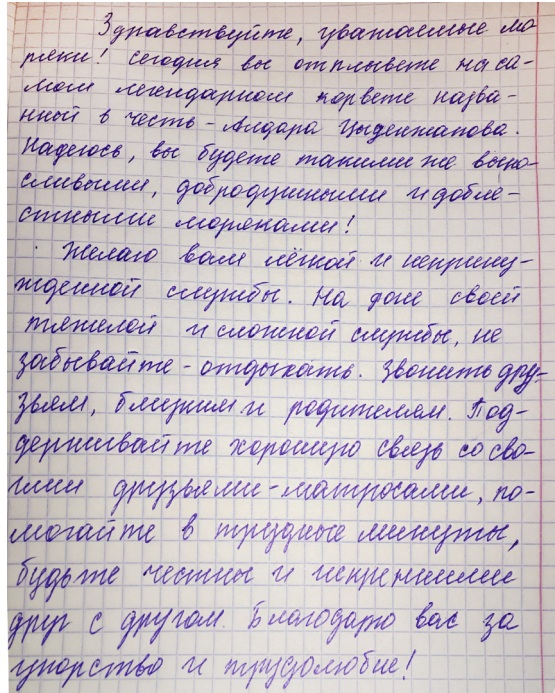 Здравствуйте, уважаемые мо-
ряки! Сегодня вы отплывете на са-
мом легендарном корвете назва-
нный в честь - Алдара Цыденжапова.
Надеюсь, вы будете такими же выно-
сливыми, добродушными и добле-
стными моряками!
Желаю вам лёгкой и неприну-
жденной службы. На фоне своей
тяжелой и сложной службы, не
забывайте - отдыхать. Звонить дру-
зьям, близким и родителям. Под-
держивайте хорошую связь со сво-
ими друзьями-матросами, по-
могайте в трудные минуты,
будьте честны и искренними
друг с другом. Благодарю вас за
упорство и трудолюбие!